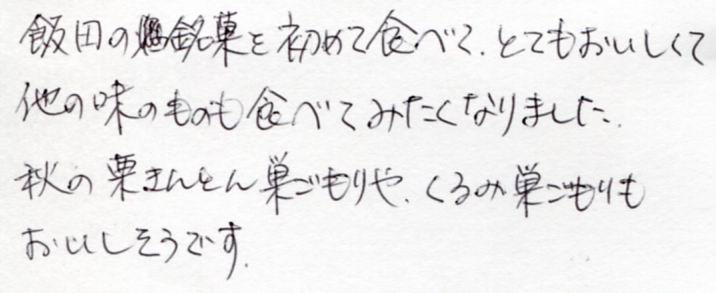 飯田の銘菓を初めて食べて、とてもおいしくて
他の味のものも食べてみたくなりました。
秋の栗きんとん巣ごもりや、くるみ巣ごもりも
おいしそうです。